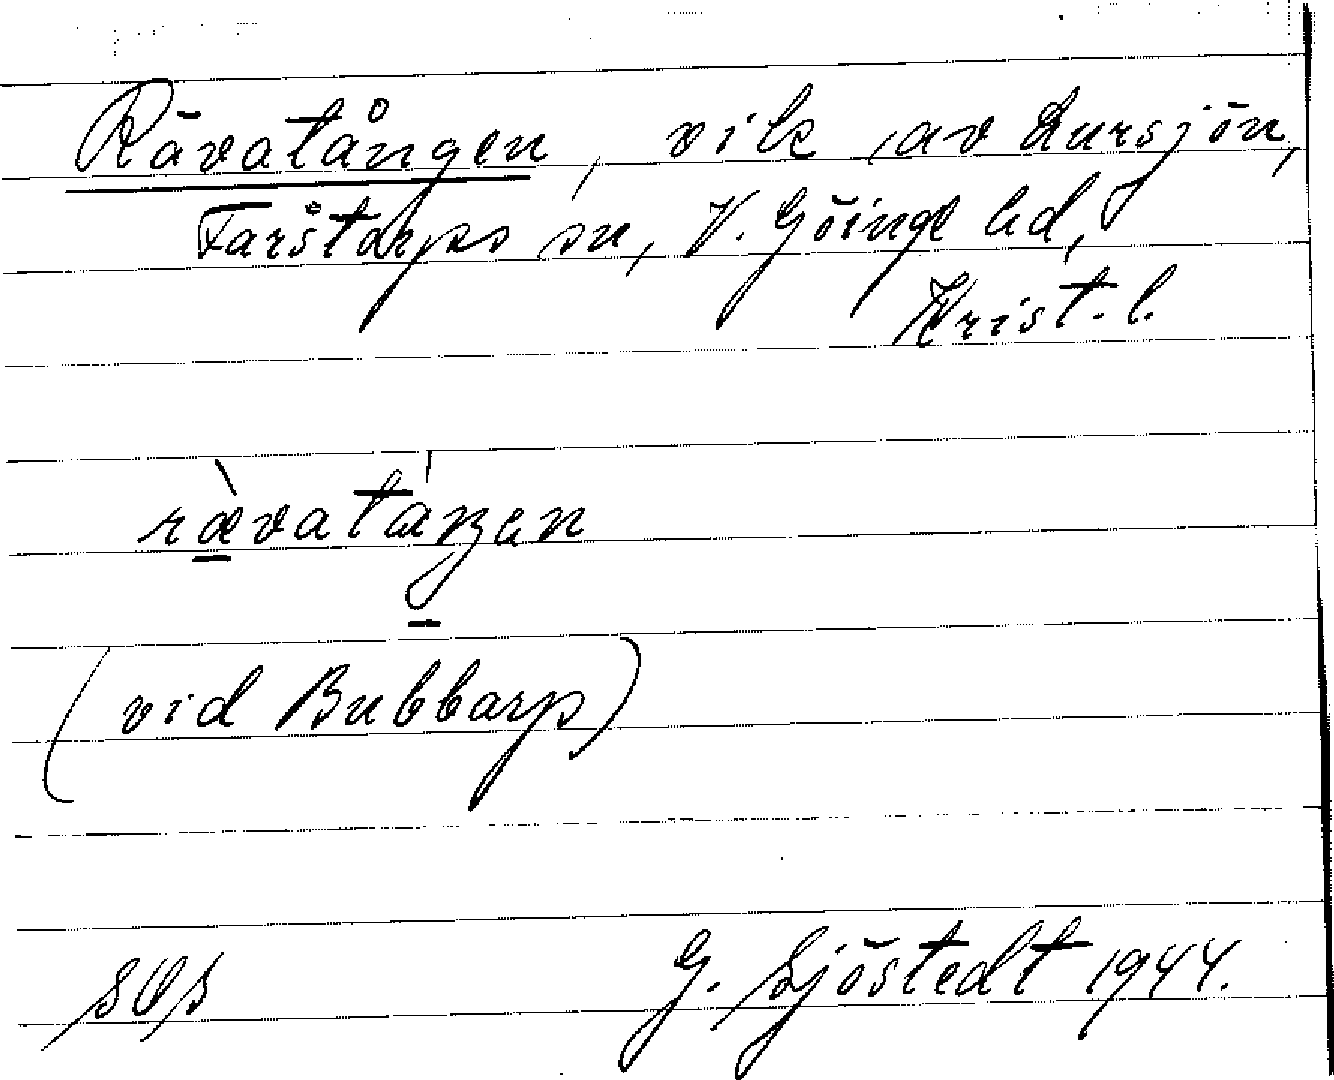 Rävatången, vik av Lursjön,
Farstorps sn, V. Göinge hd,
Krist. l.
rævatåŋen
(vid Bubbarp)
SOS G. Sjöstedt 1944.